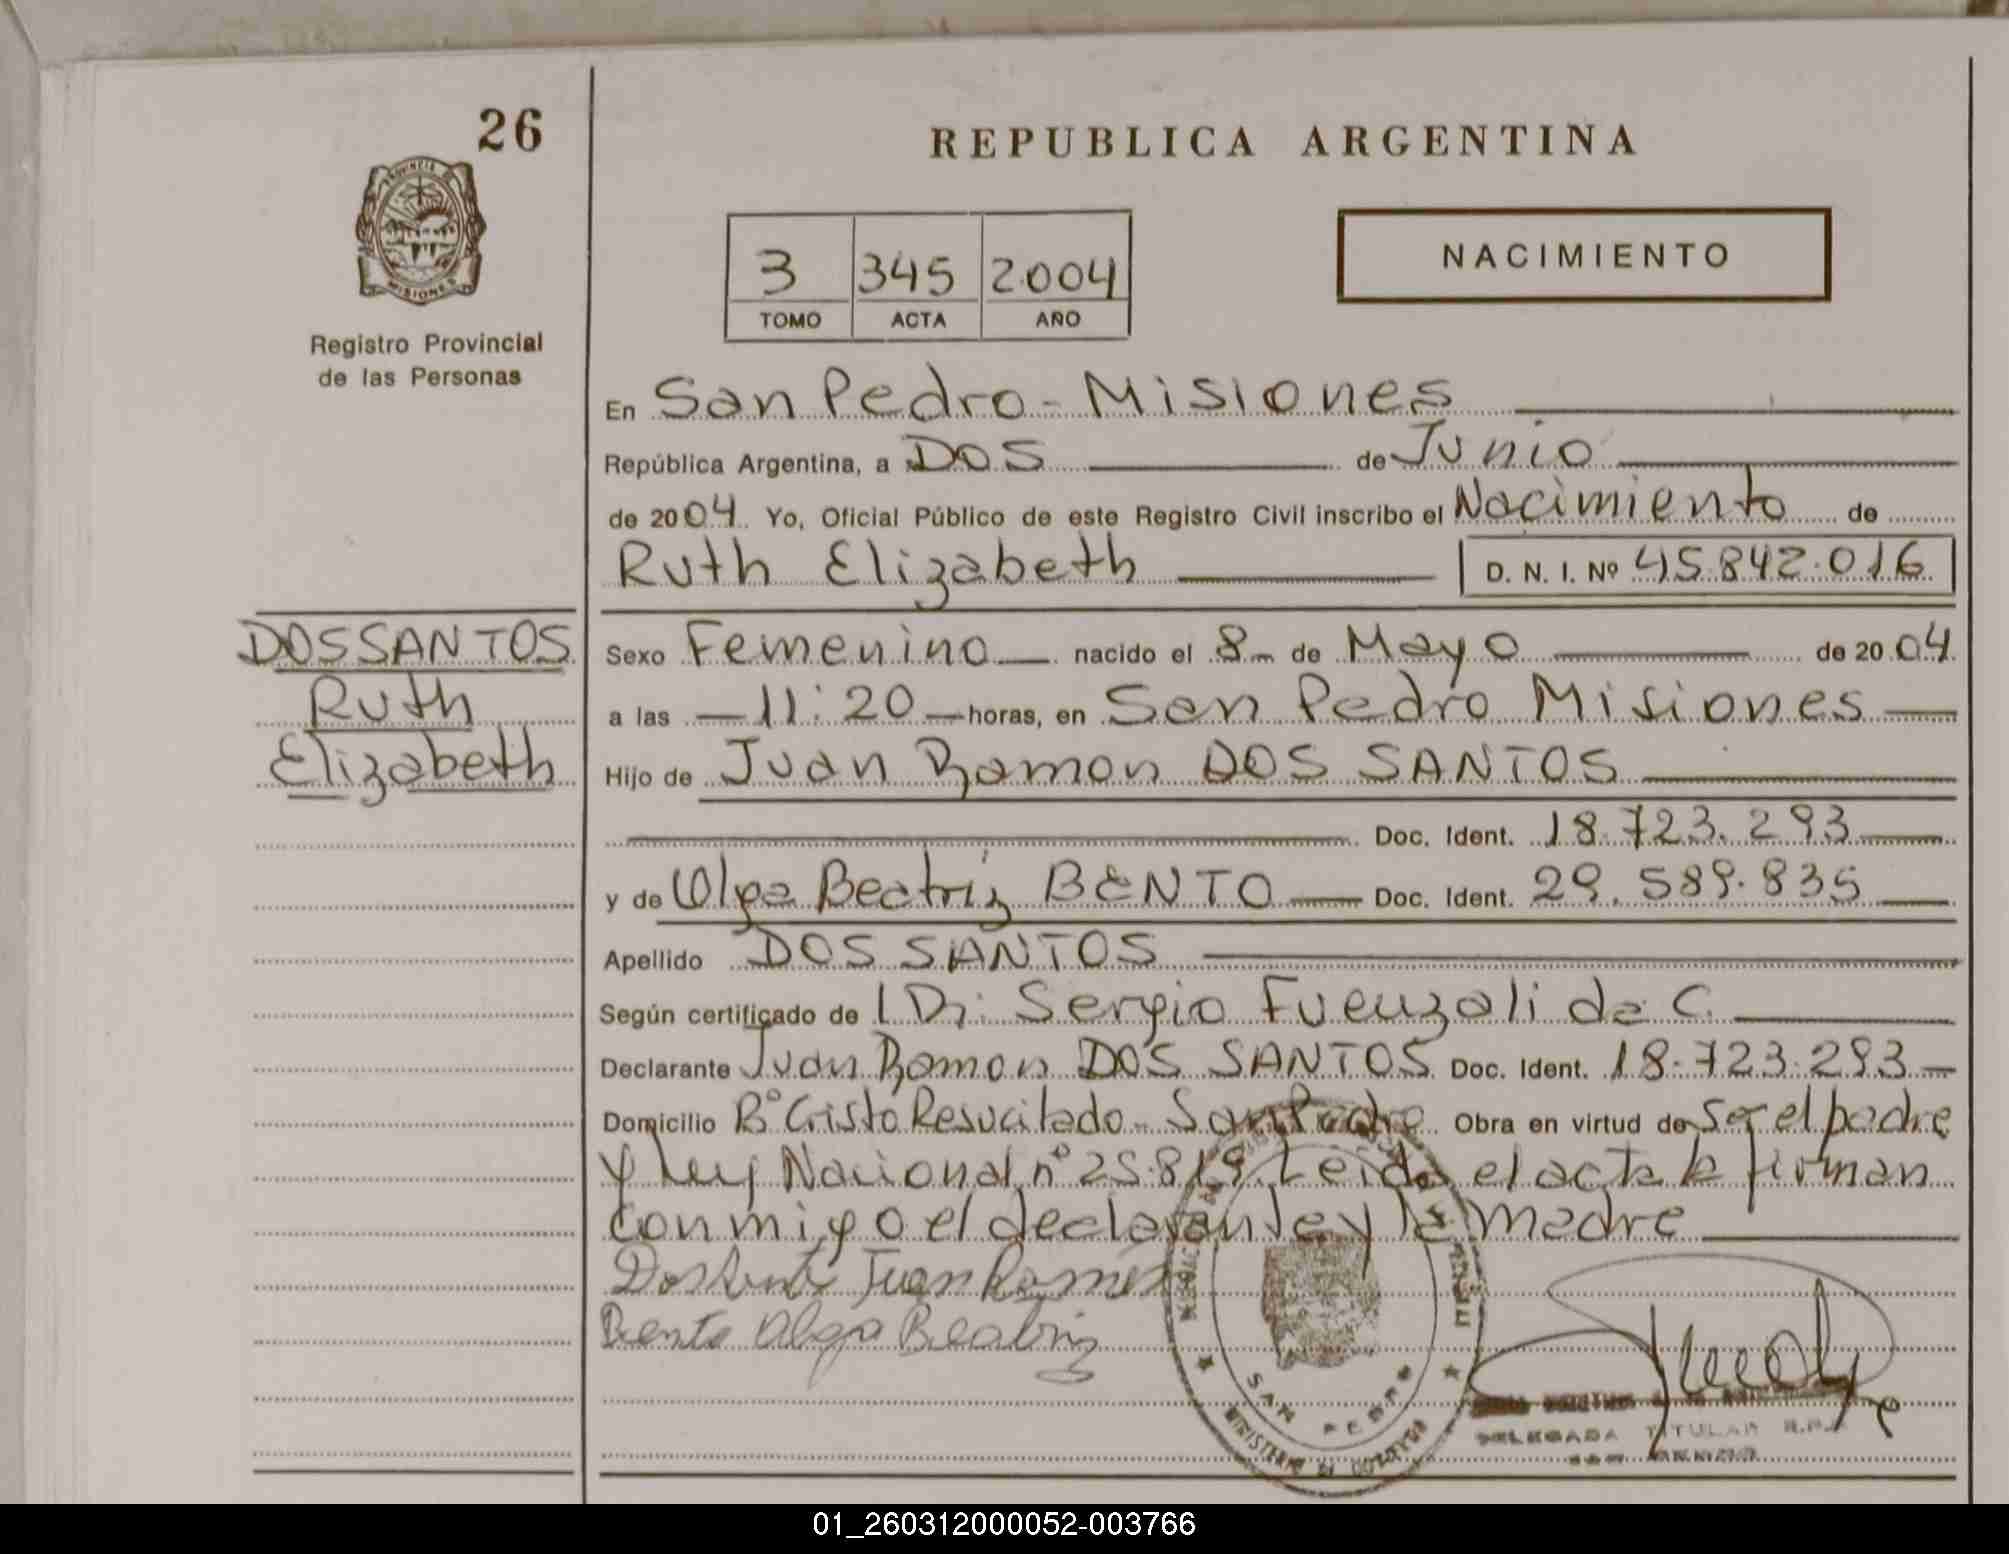 26
REPUBLICA ARGENTINA
PROVINCIA DE
MISIONES
Registro Provincial
de las Personas
3 345 2004
TOMO ACTA AÑO
NACIMIENTO
En San Pedro - Misiones
República Argentina, a DOS de Junio
de 2004. Yo, Oficial Público de este Registro Civil inscribo el Nacimiento de
Ruth Elizabeth D. N. I. Nº 45.842.016
DOS SANTOS
Ruth
Elizabeth
Sexo Femenino nacido el 8 de Mayo de 2004
a las 11:20 horas, en San Pedro Misiones
Hijo de Juan Ramon DOS SANTOS
Doc. Ident. 18.723.293
y de Olga Beatriz BENTO Doc. Ident. 29.589.835
Apellido DOS SANTOS
Según certificado de Dr: Sergio Fuenzalida C.
Declarante Juan Ramon DOS SANTOS Doc. Ident. 18.723.293
Domicilio Bº Cristo Resucitado - San Pedro Obra en virtud de Ser el padre
y Ley Nacional nº 25.819. Leida el acta la firman
conmigo el declarante y la madre
Dos Santos Juan Ramon
Bento Olga Beatriz
SAN PEDRO
MINISTERIO DE GOBIERNO
DELEGADA TITULAR R.P.P.
SAN PEDRO
01_260312000052-003766